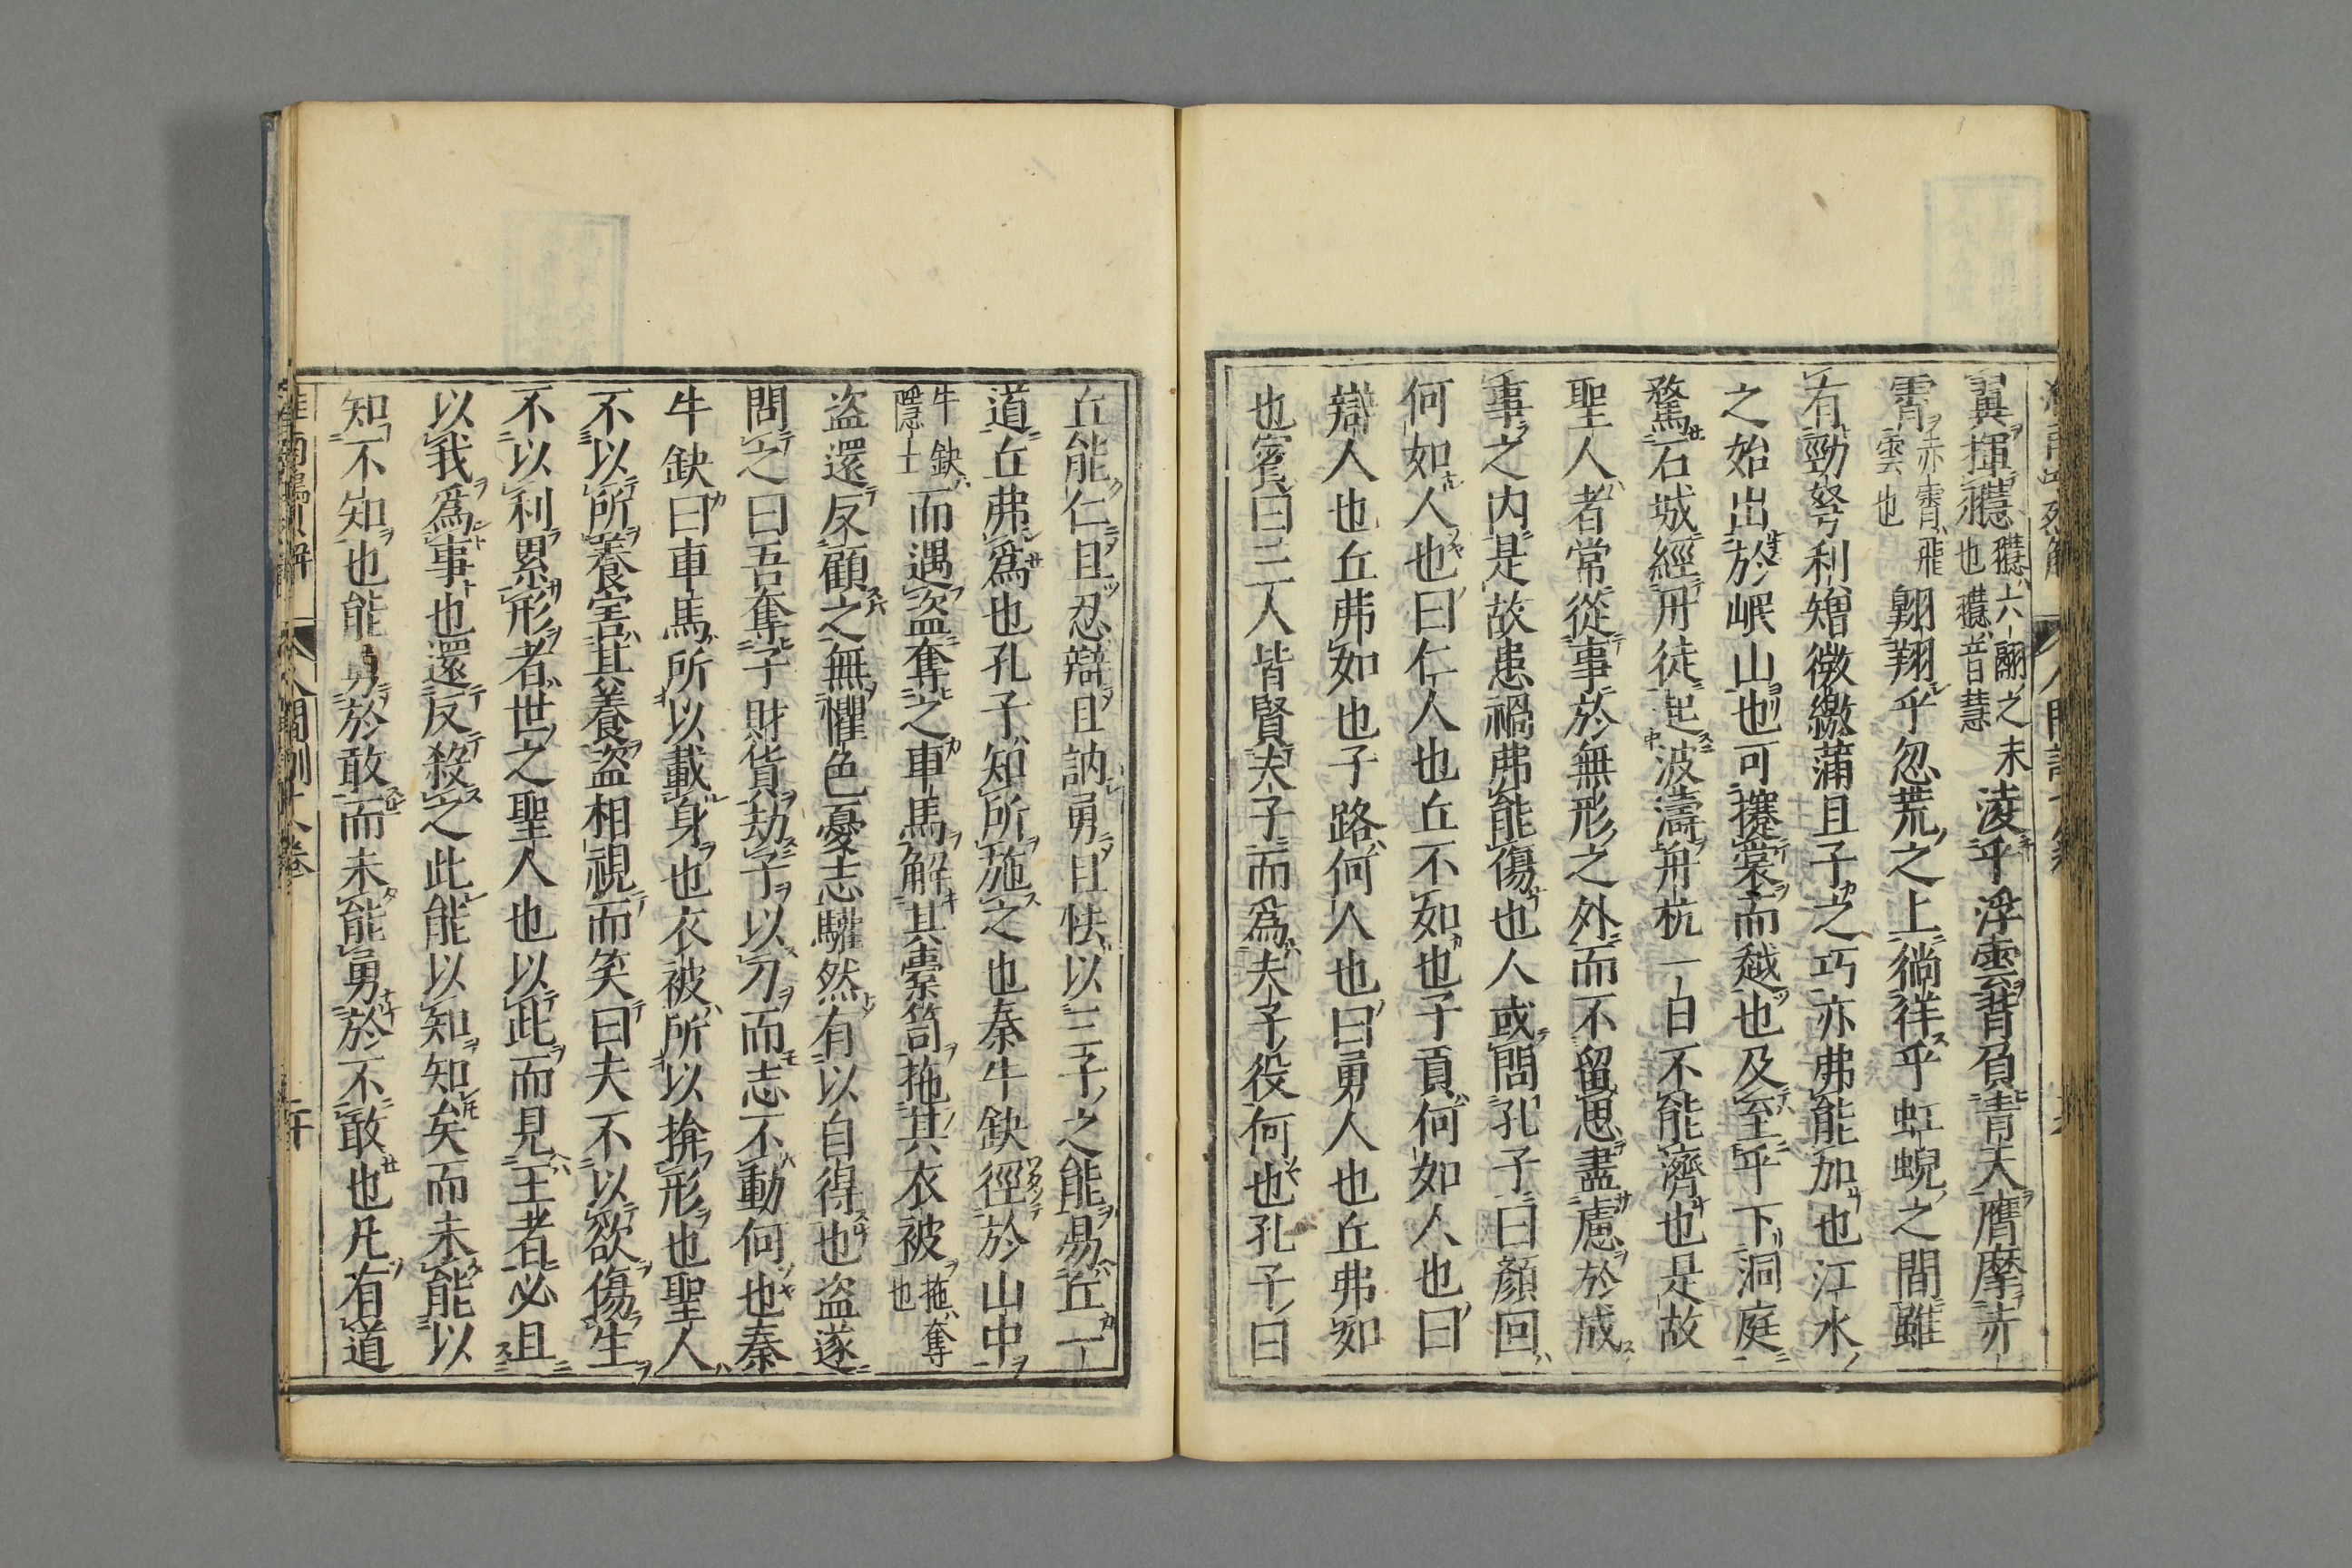 翼揮𧬨𧬨六翮之未也𧬨音慧凌乎浮雲背負青天膺摩赤
霄赤霄飛雲也翺翔乎忽荒之上徜徉乎虹蜺之間雖
有勁弩利矰微繳蒲且子之巧亦弗能加也江水
之始出於岷山也可攓裳而越也及至乎下洞庭
騖石城經丹徒起波濤舟杭一日不能濟也是故
聖人者常從事於無形之外而不留思盡慮於成
事之內是故患禍弗能傷也人或問孔子曰顏回
何如人也曰仁人也丘不如也子貢何如人也曰
辯人也丘弗如也子路何人也曰勇人也丘弗如
也賓曰三人皆賢夫子而爲夫子役何也孔子曰
丘能仁且忍辯且訥勇且怯以三子之能易丘一
道丘弗爲也孔子知所施之也秦牛缺徑於山中
牛缺隱士而遇盜奪之車馬解其橐笥拖其衣被拖奪也
盜還反顧之無懼色憂志驩然有以自得也盜遂
問之曰吾奪子財貨劫子以刀而志不動何也秦
牛缺曰車馬所以載身也衣被所以揜形也聖人
不以所養害其養盜相視而笑曰夫不以欲傷生
不以利累形者世之聖人也以此而見王者必且
以我爲事也還反殺之此能以知知矣而未能以
知不知也能勇於敢而未能勇於不敢也凡有道